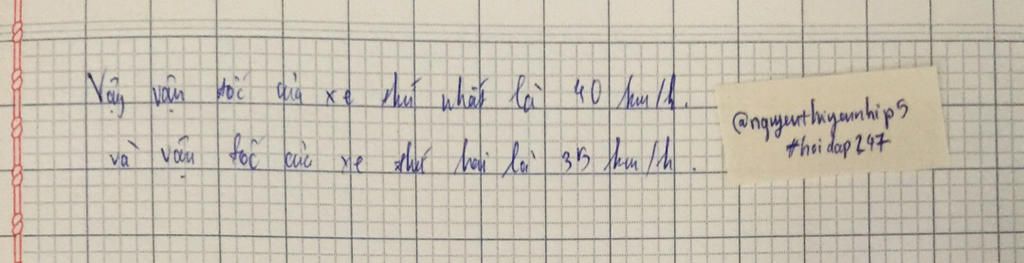 Vậy vận tốc của xe thứ nhất là 40 km/h.
và vận tốc của xe thứ hai là 35 km/h.
@nguyenthiyennhip5
#hoidap247